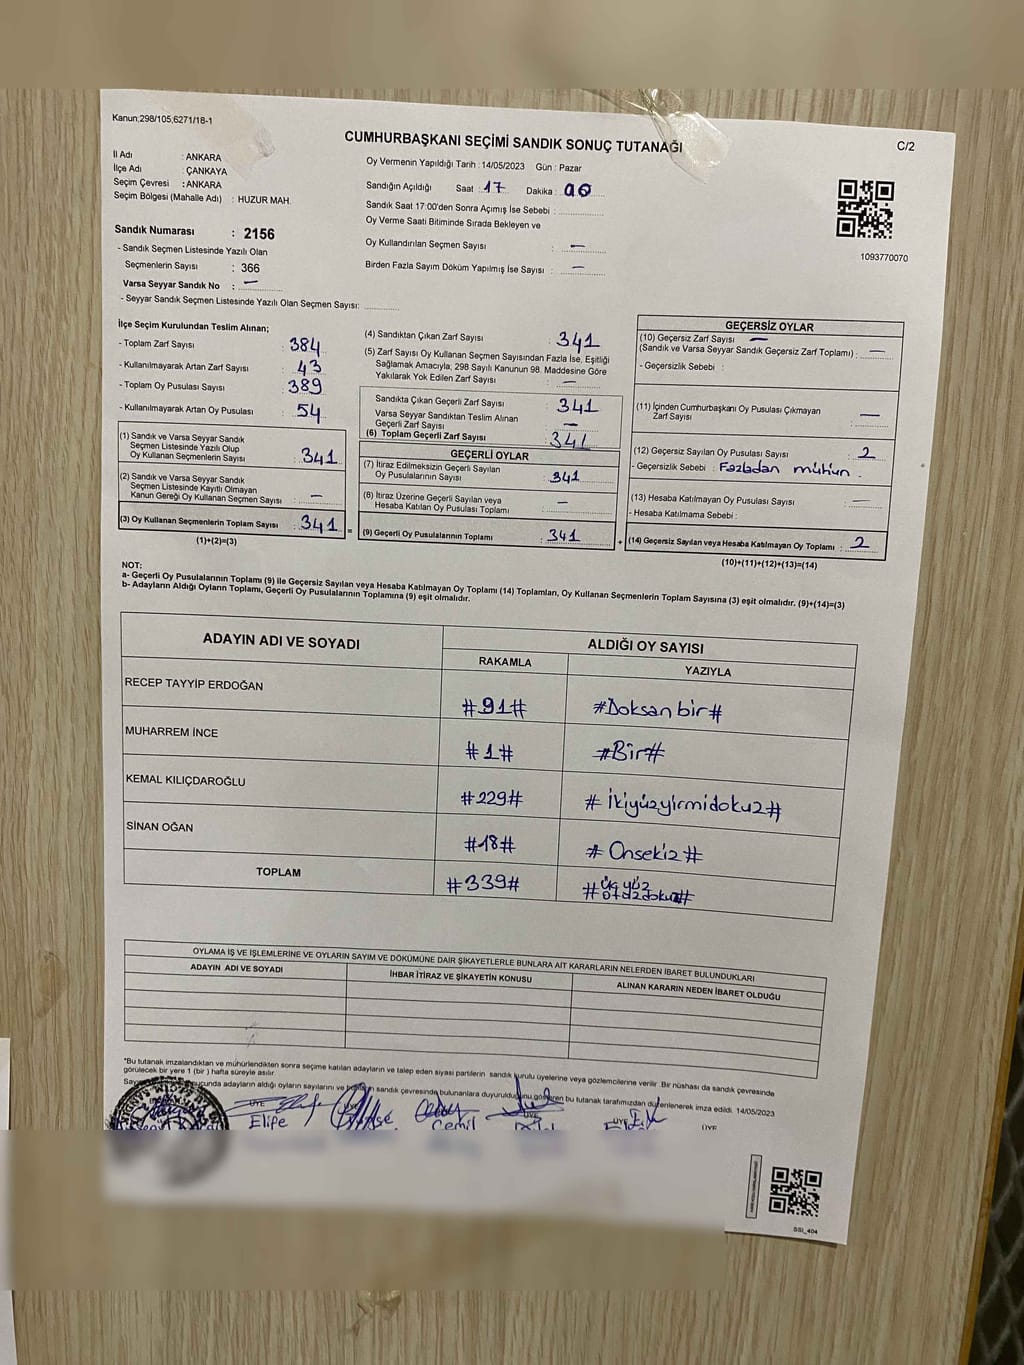 Kanun;298/105,6271/18-1
CUMHURBAŞKANI SEÇİMİ SANDIK SONUÇ TUTANAĞI
C/2
İl Adı : ANKARA
İlçe Adı : ÇANKAYA
Seçim Çevresi : ANKARA
Seçim Bölgesi (Mahalle Adı) : HUZUR MAH.
Oy Vermenin Yapıldığı Tarih : 14/05/2023 Gün : Pazar
Sandığın Açıldığı Saat : 17 Dakika : 00
Sandık Saat 17:00'den Sonra Açımış İse Sebebi :
Oy Verme Saati Bitiminde Sırada Bekleyen ve
Oy Kullandırılan Seçmen Sayısı : —
Birden Fazla Sayım Döküm Yapılmış İse Sayısı : —
1093770070
Sandık Numarası : 2156
- Sandık Seçmen Listesinde Yazılı Olan
Seçmenlerin Sayısı : 366
Varsa Seyyar Sandık No : —
- Seyyar Sandık Seçmen Listesinde Yazılı Olan Seçmen Sayısı:
İlçe Seçim Kurulundan Teslim Alınan;
- Toplam Zarf Sayısı : 384
- Kullanılmayarak Artan Zarf Sayısı : 43
- Toplam Oy Pusulası Sayısı : 389
- Kullanılmayarak Artan Oy Pusulası : 54
(1) Sandık ve Varsa Seyyar Sandık
Seçmen Listesinde Yazılı Olup
Oy Kullanan Seçmenlerin Sayısı : 341
(2) Sandık ve Varsa Seyyar Sandık
Seçmen Listesinde Kayıtlı Olmayan
Kanun Gereği Oy Kullanan Seçmen Sayısı : —
(3) Oy Kullanan Seçmenlerin Toplam Sayısı : 341 =
(1)+(2)=(3)
(4) Sandıktan Çıkan Zarf Sayısı : 341
(5) Zarf Sayısı Oy Kullanan Seçmen Sayısından Fazla İse, Eşitliği
Sağlamak Amacıyla; 298 Sayılı Kanunun 98. Maddesine Göre
Yakılarak Yok Edilen Zarf Sayısı : —
Sandıkta Çıkan Geçerli Zarf Sayısı : 341
Varsa Seyyar Sandıktan Teslim Alınan
Geçerli Zarf Sayısı : —
(6) Toplam Geçerli Zarf Sayısı : 341
GEÇERLİ OYLAR
(7) İtiraz Edilmeksizin Geçerli Sayılan
Oy Pusulalarının Sayısı : 341
(8) İtiraz Üzerine Geçerli Sayılan veya
Hesaba Katılan Oy Pusulası Toplamı : —
(9) Geçerli Oy Pusulalarının Toplamı : 341 +
GEÇERSİZ OYLAR
(10) Geçersiz Zarf Sayısı —
(Sandık ve Varsa Seyyar Sandık Geçersiz Zarf Toplamı) : —
- Geçersizlik Sebebi :
(11) İçinden Cumhurbaşkanı Oy Pusulası Çıkmayan
Zarf Sayısı : —
(12) Geçersiz Sayılan Oy Pusulası Sayısı : 2
- Geçersizlik Sebebi : Fazladan mühün
(13) Hesaba Katılmayan Oy Pusulası Sayısı : —
- Hesaba Katılmama Sebebi :
(14) Geçersiz Sayılan veya Hesaba Katılmayan Oy Toplamı : 2
(10)+(11)+(12)+(13)=(14)
NOT:
a- Geçerli Oy Pusulalarının Toplamı (9) ile Geçersiz Sayılan veya Hesaba Katılmayan Oy Toplamı (14) Toplamları, Oy Kullanan Seçmenlerin Toplam Sayısına (3) eşit olmalıdır. (9)+(14)=(3)
b- Adayların Aldığı Oyların Toplamı, Geçerli Oy Pusulalarının Toplamına (9) eşit olmalıdır.
ADAYIN ADI VE SOYADI ALDIĞI OY SAYISI
RAKAMLA YAZIYLA
RECEP TAYYİP ERDOĞAN #91# #Doksan bir#
MUHARREM İNCE #1# #Bir#
KEMAL KILIÇDAROĞLU #229# #İkiyüzyirmidokuz#
SİNAN OĞAN #18# #Onsekiz#
TOPLAM #339# #Üçyüz
otuzdokuz#
OYLAMA İŞ VE İŞLEMLERİNE VE OYLARIN SAYIM VE DÖKÜMÜNE DAİR ŞİKAYETLERLE BUNLARA AİT KARARLARIN NELERDEN İBARET BULUNDUKLARI
ADAYIN ADI VE SOYADI İHBAR İTİRAZ VE ŞİKAYETİN KONUSU ALINAN KARARIN NEDEN İBARET OLDUĞU
*Bu tutanak imzalandıktan ve mühürlendikten sonra seçime katılan adayların ve talep eden siyasi partilerin sandık kurulu üyelerine veya gözlemcilerine verilir. Bir nüshası da sandık çevresinde
görülecek bir yere 1 (bir) hafta süreyle asılır.
adayların aldığı oyların sayılarını ve sandık çevresinde bulunanlara duyurulduğunu gösteren bu tutanak tarafımızdan düzenlenerek imza edildi. 14/05/2023
ÜYE ÜYE ÜYE ÜYE
Elife Cemil
SSI_404